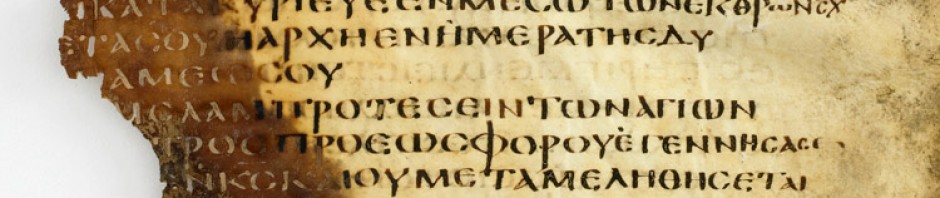 ΙΚΑΤΑΚΥΡΙΕΥΕΕΝΜΕϹΩΤΩΝΕΚΘΡΩΝϹ
ΕΤΑϹΟΥΗΑΡΧΗΕΝΗΜΕΡΑΤΗϹΔΥ
ΝΑΜΕΩϹϹΟΥ
ΙϹΛΑΜΠΡΟΤΕϹΕΙΝΤΩΝΑΓΙΩΝ
ΤΡΟϹΠΡΟΕΩϹΦΟΡΟΥΕΓΕΝΝΗϹΑϹΕ
ΝΚϹΚΑΙΟΥΜΕΤΑΜΕΛΗΘΗϹΕΤΑΙ